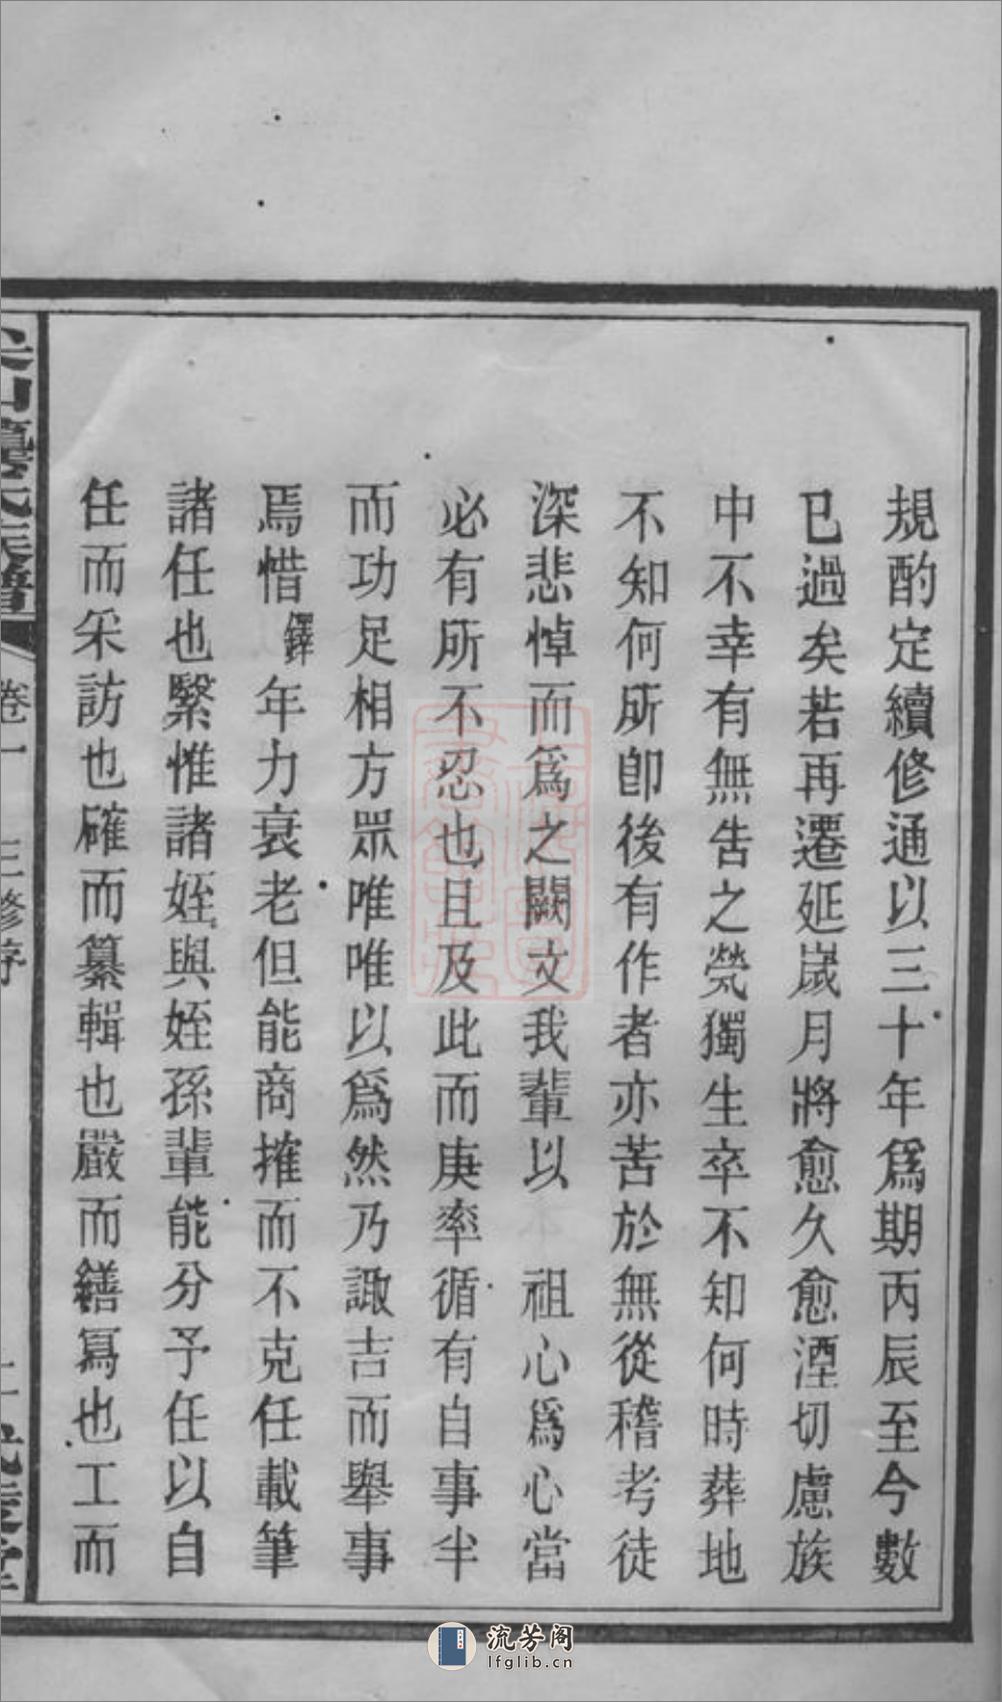 規酌定續修通以三十年爲期丙辰至今數
已過矣若再遷延歲月將愈久愈湮切慮族
中不幸有無告之煢獨生卒不知何時葬地
不知何所卽後有作者亦苦於無從稽考徒
深悲悼而爲之闕文我輩以 祖心爲心當
必有所不忍也且及此而庚率循有自事半
而功足相方眾唯唯以爲然乃諏吉而舉事
焉惜鐸年力衰老但能商搉而不克任載筆
諸任也緊惟諸姪與姪孫輩能分予任以自
任而采訪也確而纂輯也嚴而繕寫也工而
尖山龔氏族譜 卷一 三修序
流芳阁
lfglib.cn